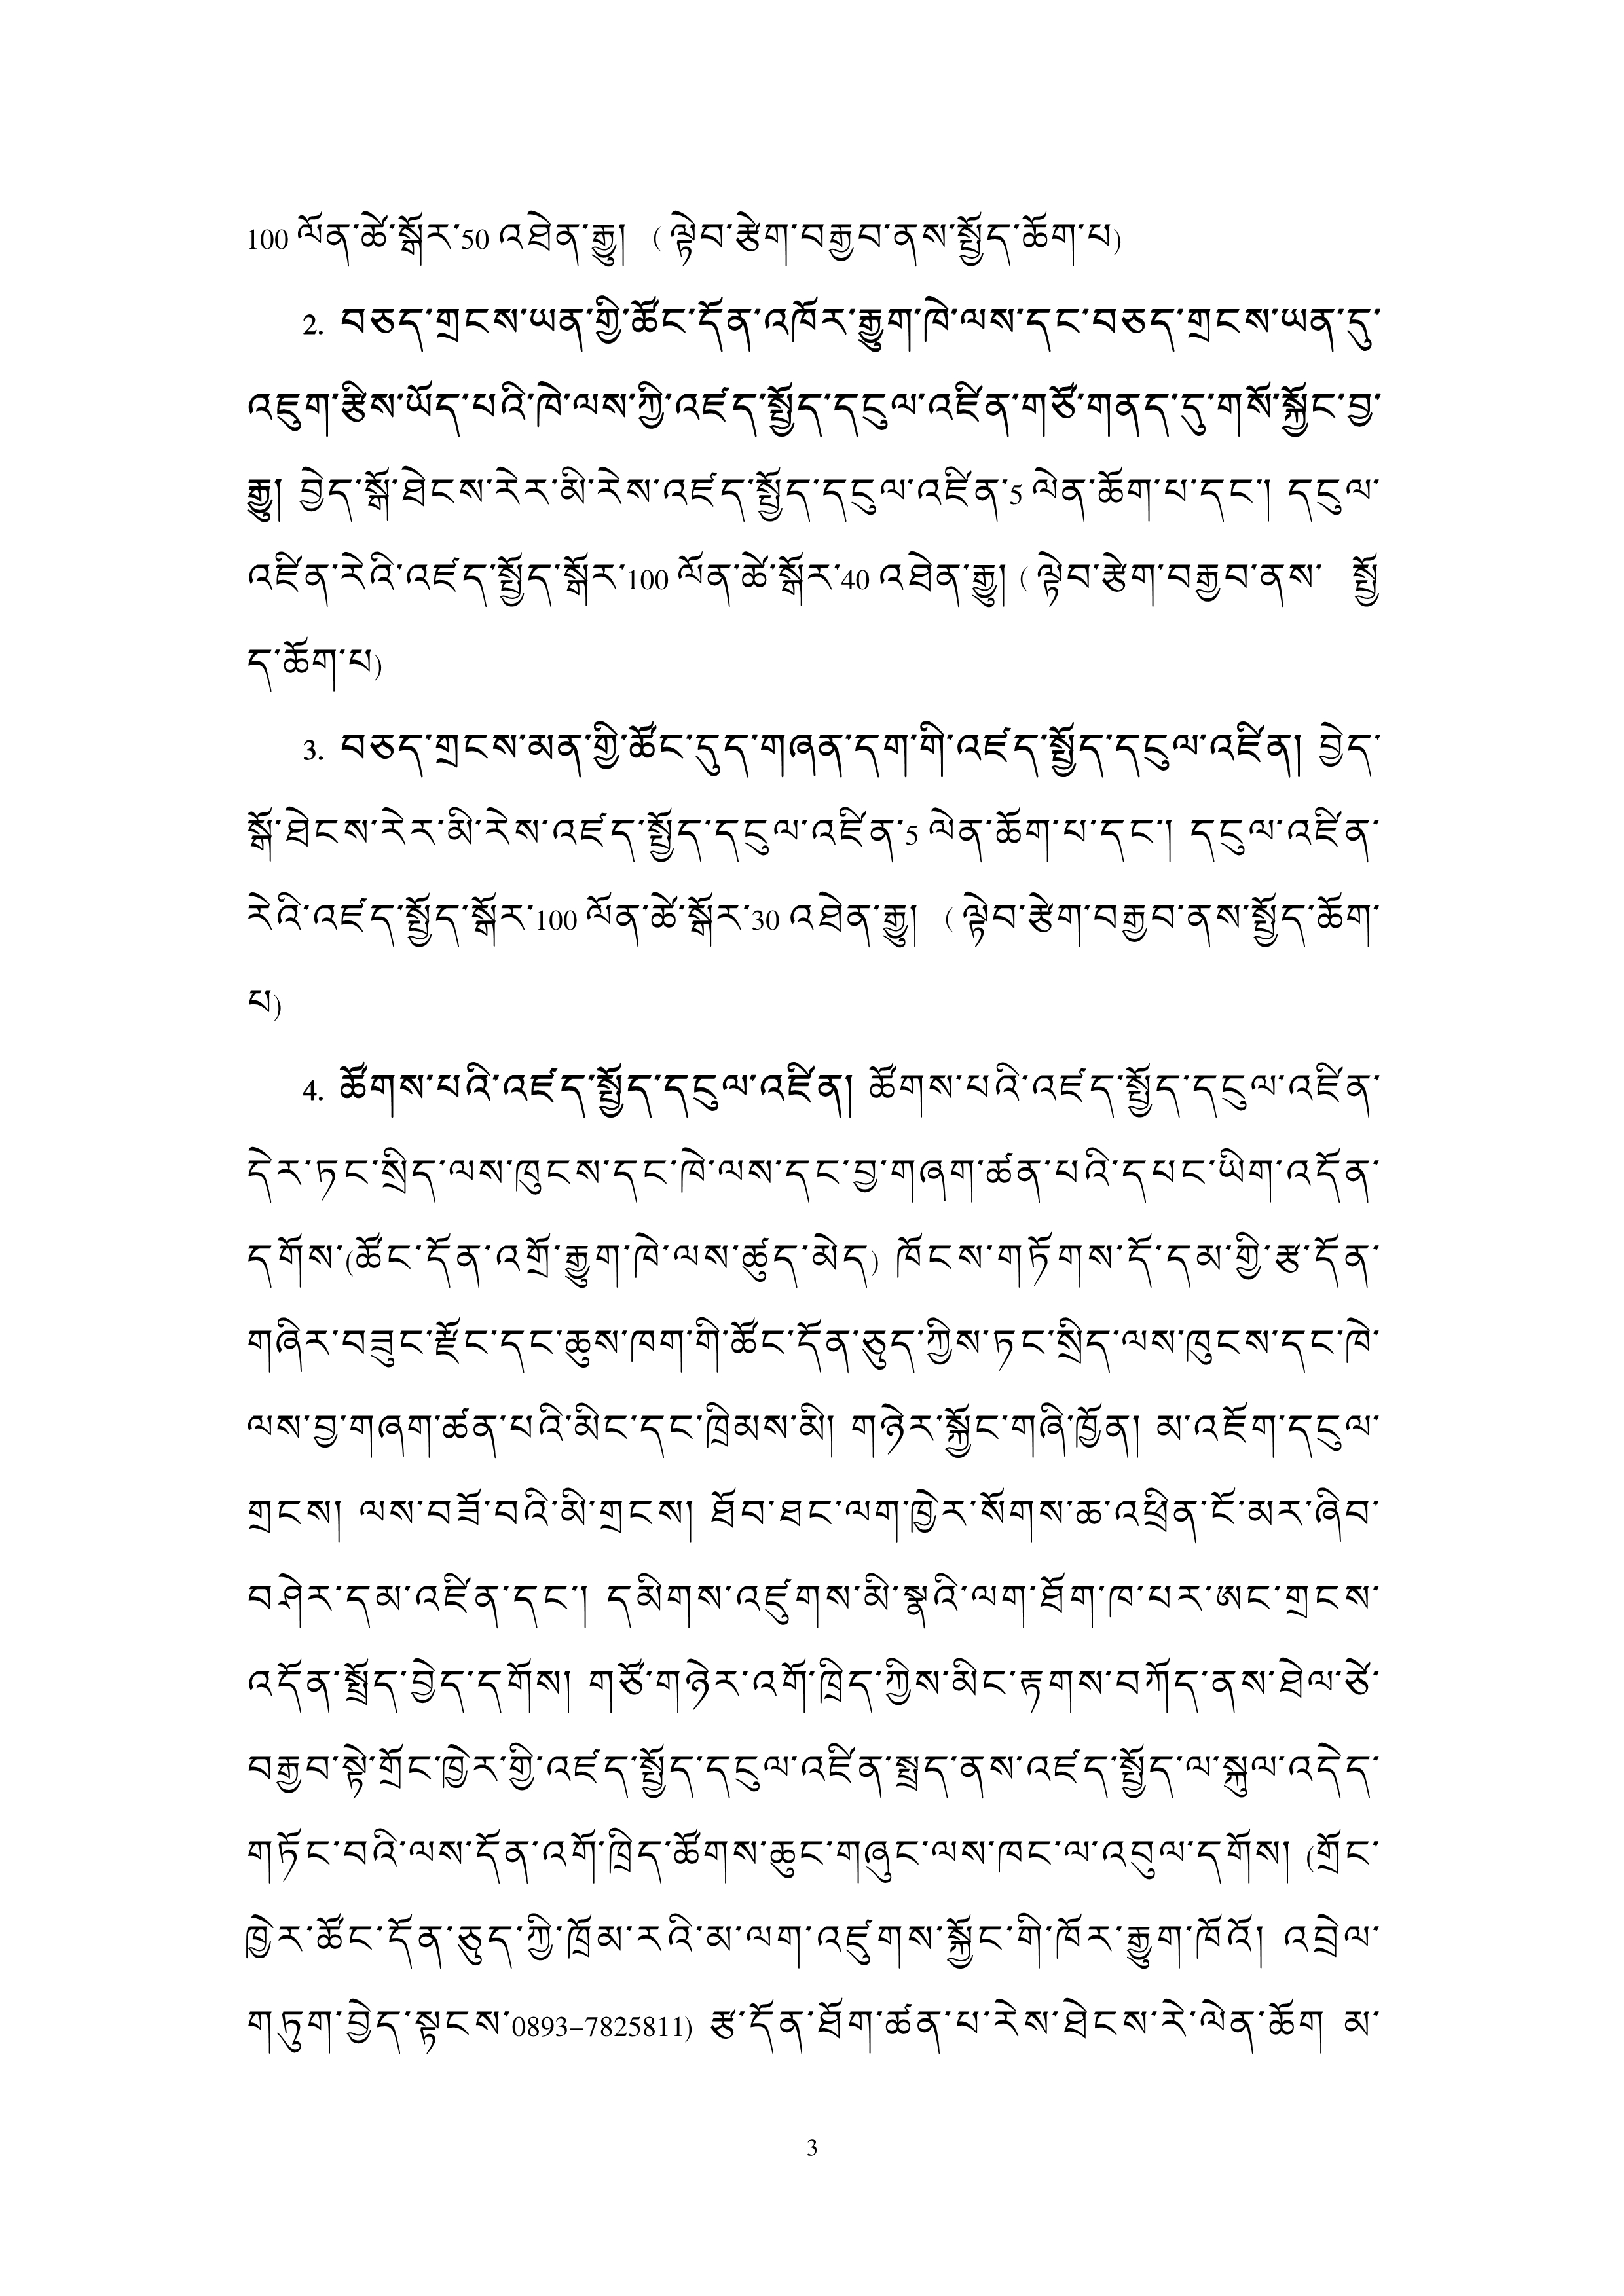 100 ལོན་ཚེ་སྒོར་50 འཐེན་རྒྱུ། (ལྟེབ་རྩེག་བརྒྱབ་ནས་སྤྱོད་ཆོག་པ)
2. བཅད་གྲངས་ཡན་གྱི་ཚོང་དོན་འཁོར་རྒྱུག་ཁེ་ལས་དང་བཅད་གྲངས་ཡན་དུ་
འཇུག་རྩིས་ཡོད་པའི་ཁེ་ལས་ཀྱི་འཛད་སྤྱོད་དངུལ་འཛིན་གཙོ་གནད་དུ་གསོ་སྐྱོང་བྱ་
རྒྱུ། བྱེད་སྒོ་ཐེངས་རེར་མི་རེས་འཛད་སྤྱོད་དངུལ་འཛིན་5 ལེན་ཆོག་པ་དང་། དངུལ་
འཛིན་རེའི་འཛད་སྤྱོད་སྒོར་100 ལོན་ཚེ་སྒོར་40 འཐེན་རྒྱུ། (ལྟེབ་རྩེག་བརྒྱབ་ནས་ སྤྱོ
ད་ཆོག་པ)
3. བཅད་གྲངས་མན་གྱི་ཚོང་དུད་གཞན་དག་གི་འཛད་སྤྱོད་དངུལ་འཛིན། བྱེད་
སྒོ་ཐེངས་རེར་མི་རེས་འཛད་སྤྱོད་དངུལ་འཛིན་5 ལེན་ཆོག་པ་དང་། དངུལ་འཛིན་
རེའི་འཛད་སྤྱོད་སྒོར་100 ལོན་ཚེ་སྒོར་30 འཐེན་རྒྱུ། (ལྟེབ་རྩེག་བརྒྱབ་ནས་སྤྱོད་ཆོག་
པ)
4. ཚོགས་པའི་འཛད་སྤྱོད་དངུལ་འཛིན། ཚོགས་པའི་འཛད་སྤྱོད་དངུལ་འཛིན་
དེར་ཏང་སྲིད་ལས་ཁུངས་དང་ཁེ་ལས་དང་བྱ་གཞག་ཚན་པའི་དཔང་ཡིག་འདོན་
དགོས་(ཚོང་དོན་འགྲོ་རྒྱུག་ཁེ་ལས་ཚུད་མེད) ཁོངས་གཏོགས་དོ་དམ་གྱི་རྩ་དོན་
གཞིར་བཟུང་རྫོང་དང་ཆུས་ཁག་གི་ཚོང་དོན་ཅུད་ཀྱིས་ཏང་སྲིད་ལས་ཁུངས་དང་ཁེ་
ལས་བྱ་གཞག་ཚན་པའི་མིང་དང་ཁྲིམས་མི། གཉེར་སྐྱོང་གཞི་ཁྱོན། མ་འཇོག་དངུལ་
གྲངས། ལས་བཟོ་བའི་མི་གྲངས། ཐོབ་ཐང་ལག་ཁྱེར་སོགས་ཆ་འཕྲིན་ངོ་མར་ཞིབ་
བཤེར་དམ་འཛིན་དང་། དམིགས་འཛུགས་མི་སྣའི་ལག་ཐོག་ཁ་པར་ཨང་གྲངས་
འདོན་སྤྲོད་བྱེད་དགོས། གཙོ་གཉེར་འགོ་ཁྲིད་ཀྱིས་མིང་རྟགས་བཀོད་ནས་ཐེལ་ཙེ་
བརྒྱབ་སྟེ་གྲོང་ཁྱེར་གྱི་འཛད་སྤྱོད་དངུལ་འཛིན་སྤྲད་ནས་འཛད་སྤྱོད་ལ་སྐུལ་འདེད་
གཏོང་བའི་ལས་དོན་འགོ་ཁྲིད་ཚོགས་ཆུང་གཞུང་ལས་ཁང་ལ་འབུལ་དགོས། (གྲོང་
ཁྱེར་ཚོང་དོན་ཅུད་ཀྱི་ཁྲོམ་རའི་མ་ལག་འཛུགས་སྐྱོང་གི་ཁོར་རྒྱུག་ཁོའོ། འབྲེལ་
གཏུག་བྱེད་སྟངས་0893-7825811) རྩ་དོན་ཐོག་ཚན་པ་རེས་ཐེངས་རེ་ལེན་ཆོག མ་
3